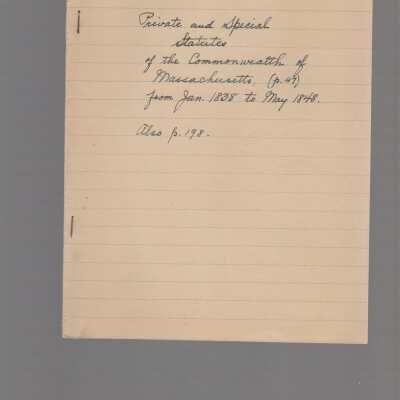 Private and Special
Statutes
of the Commonwealth of
Massachusetts, (p. 49)
from Jan. 1838 to May 1848.
Also p. 198.